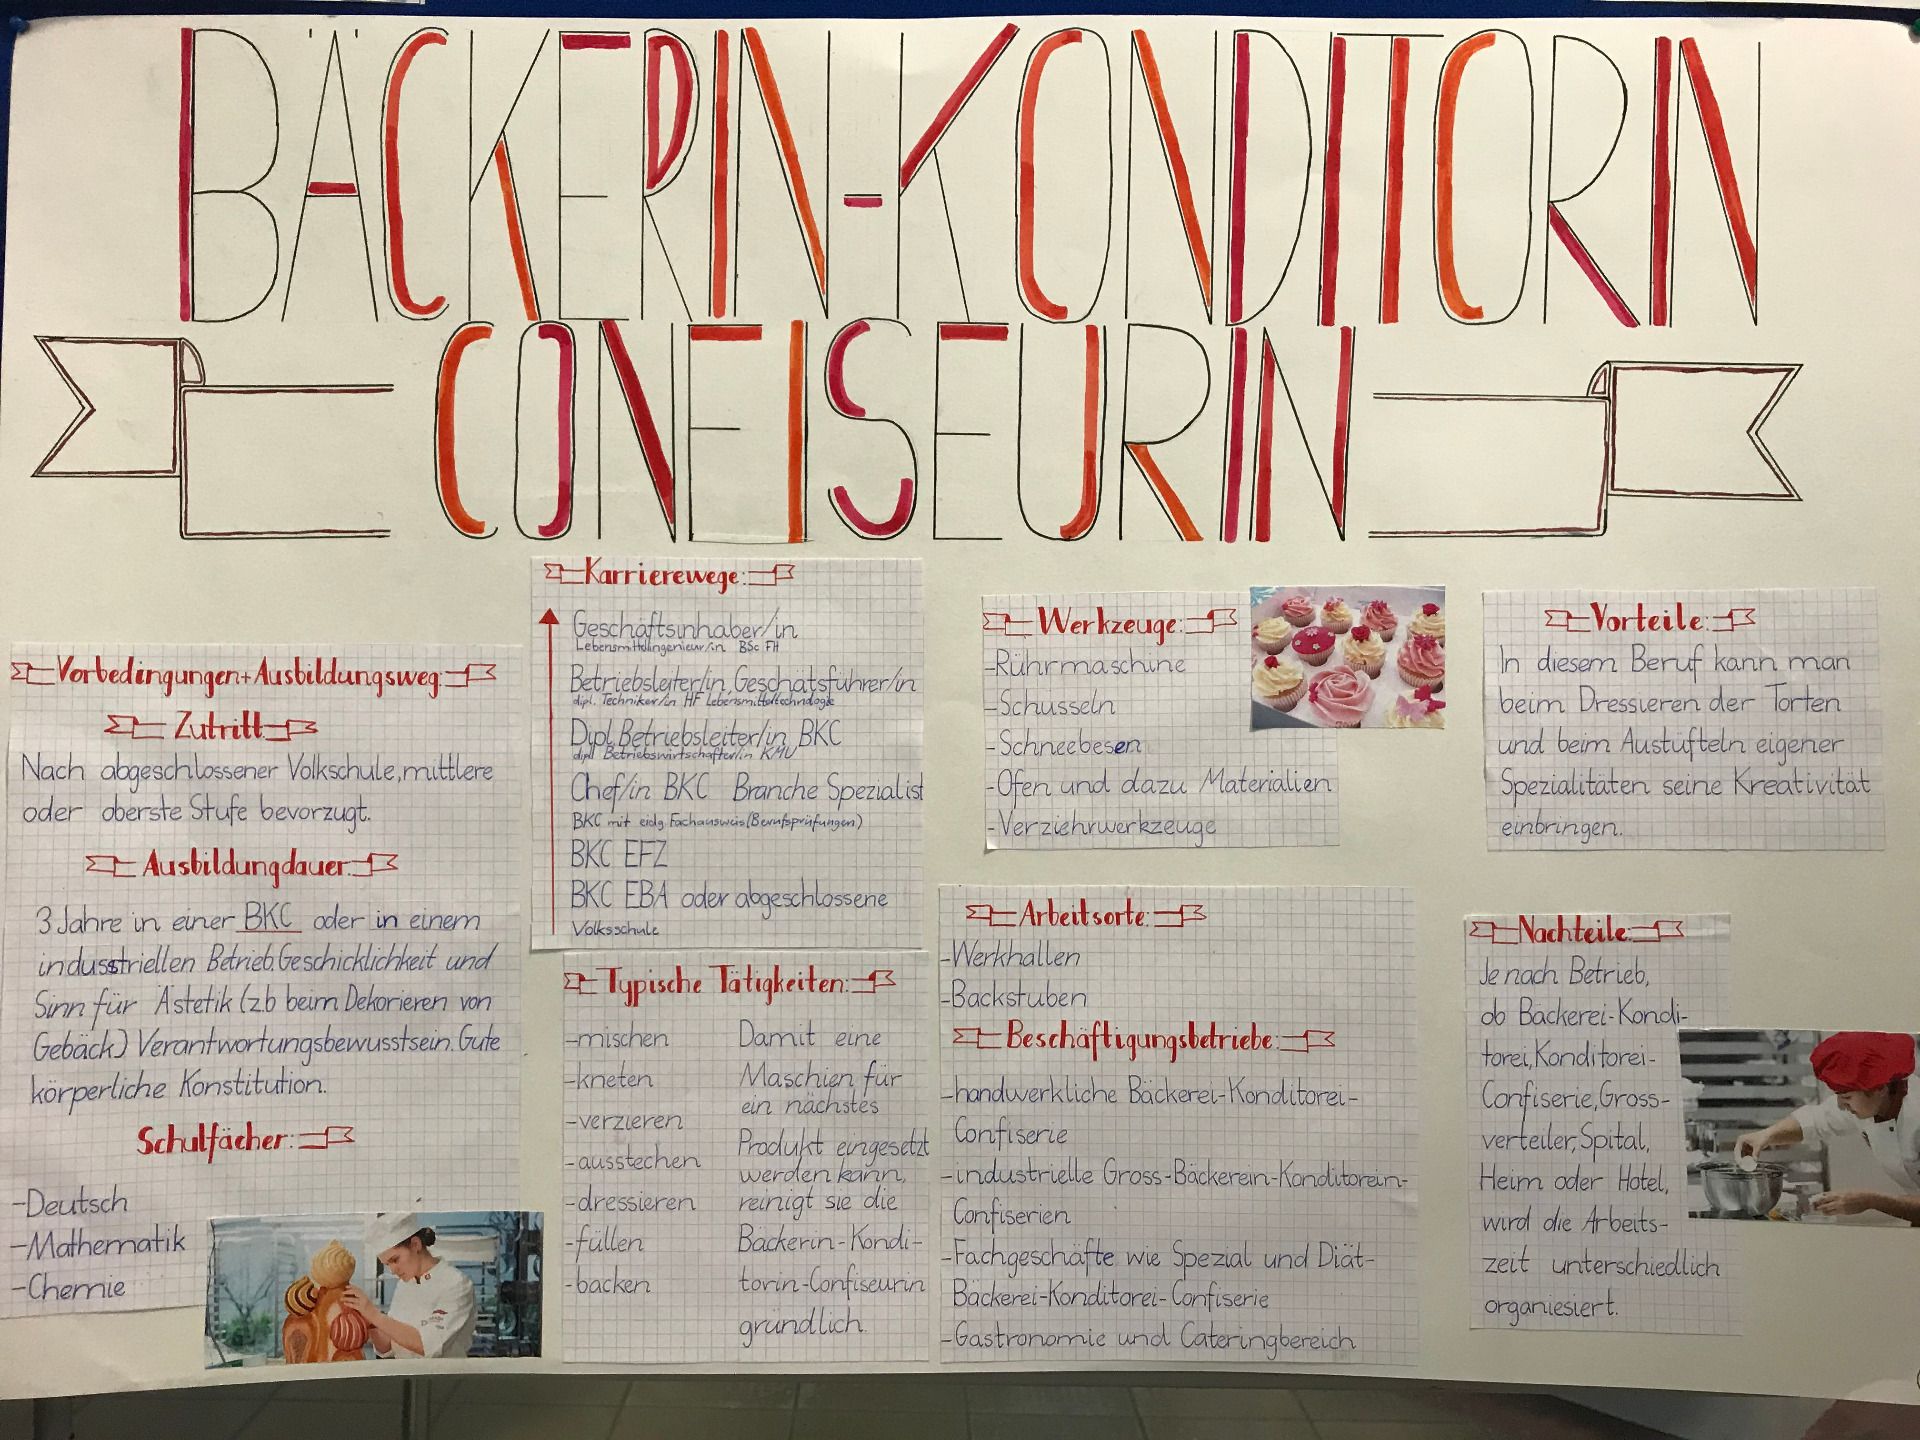 BÄCKERIN-KONDITORIN
CONFISEURIN
Vorbedingungen+Ausbildungsweg:
Zutritt
Nach abgeschlossener Volkschule, mittlere
oder oberste Stufe bevorzugt.
Ausbildungdauer:
3 Jahre in einer BKC oder in einem
industriellen Betrieb. Geschicklichkeit und
Sinn für Ästetik (z.b beim Dekorieren von
Gebäck) Verantwortungsbewusstsein. Gute
körperliche Konstitution.
Schulfächer:
-Deutsch
-Mathematik
-Chemie
Karrierewege:
Geschäftsinhaber/in
Lebensmittelingenieur/in BSc FH
Betriebsleiter/in, Geschätsführer/in
dipl. Techniker/in HF Lebensmitteltechnologie
Dipl. Betriebsleiter/in BKC
dipl. Betriebswirtschafter/in KMU
Chef/in BKC Branche Spezialist
BKC mit eidg. Fachausweis (Berufsprüfungen)
BKC EFZ
BKC EBA oder abgeschlossene
Volksschule
Typische Tätigkeiten:
-mischen
-kneten
-verzieren
-ausstechen
-dressieren
-füllen
-backen
Damit eine
Maschien für
ein nächstes
Produkt eingesetzt
werden kann,
reinigt sie die
Bäckerin-Kondi-
torin-Confiseurin
gründlich.
Werkzeuge:
-Rührmaschine
-Schüsseln
-Schneebesen
-Ofen und dazu Materialien
-Verziehrwerkzeuge
Arbeitsorte:
-Werkhallen
-Backstuben
Beschäftigungsbetriebe:
-handwerkliche Bäckerei-Konditorei-
Confiserie
-industrielle Gross-Bäckerein-Konditorein-
Confiserien
-Fachgeschäfte wie Spezial und Diät-
Bäckerei-Konditorei-Confiserie
-Gastronomie und Cateringbereich
Vorteile:
In diesem Beruf kann man
beim Dressieren der Torten
und beim Austüfteln eigener
Spezialitäten seine Kreativität
einbringen.
Nachteile:
Je nach Betrieb,
ob Bäckerei-Kondi-
torei, Konditorei-
Confiserie, Gross-
verteiler, Spital,
Heim oder Hotel,
wird die Arbeits-
zeit unterschiedlich
organiesiert.